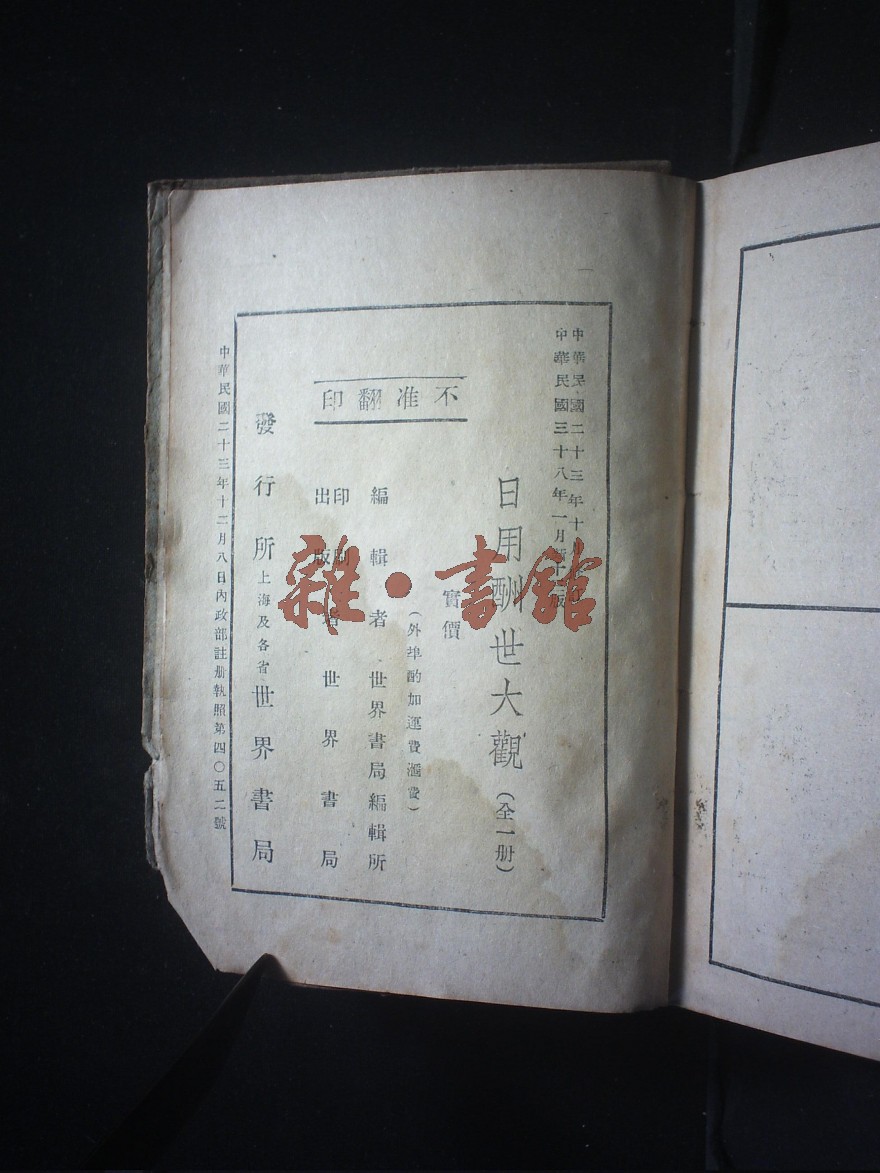 中華民國二十三年十
中華民國三十八年一月新十版
日用酬世大觀（全一册）
實價
（外埠酌加運費滙費）
不准翻印
編輯者 世界書局編輯所
印刷者
出版者 世界書局
發行所 上海及各省 世界書局
中華民國二十三年十二月八日內政部註册執照第四〇五二號
雜·書館